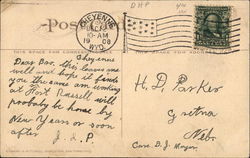 DHP
Post
CHEYENNE
10-AM
1908
WYO.
THIS SPACE FOR
Cheyenne
Dear Bro. this leaves me
well and hope it finds
you the same am working
at Fort Russell will
probably be home by
New Years or soon
after J. A. P.
H. D. Parker
Gretna
Neb.
Care. B. J. Mayer